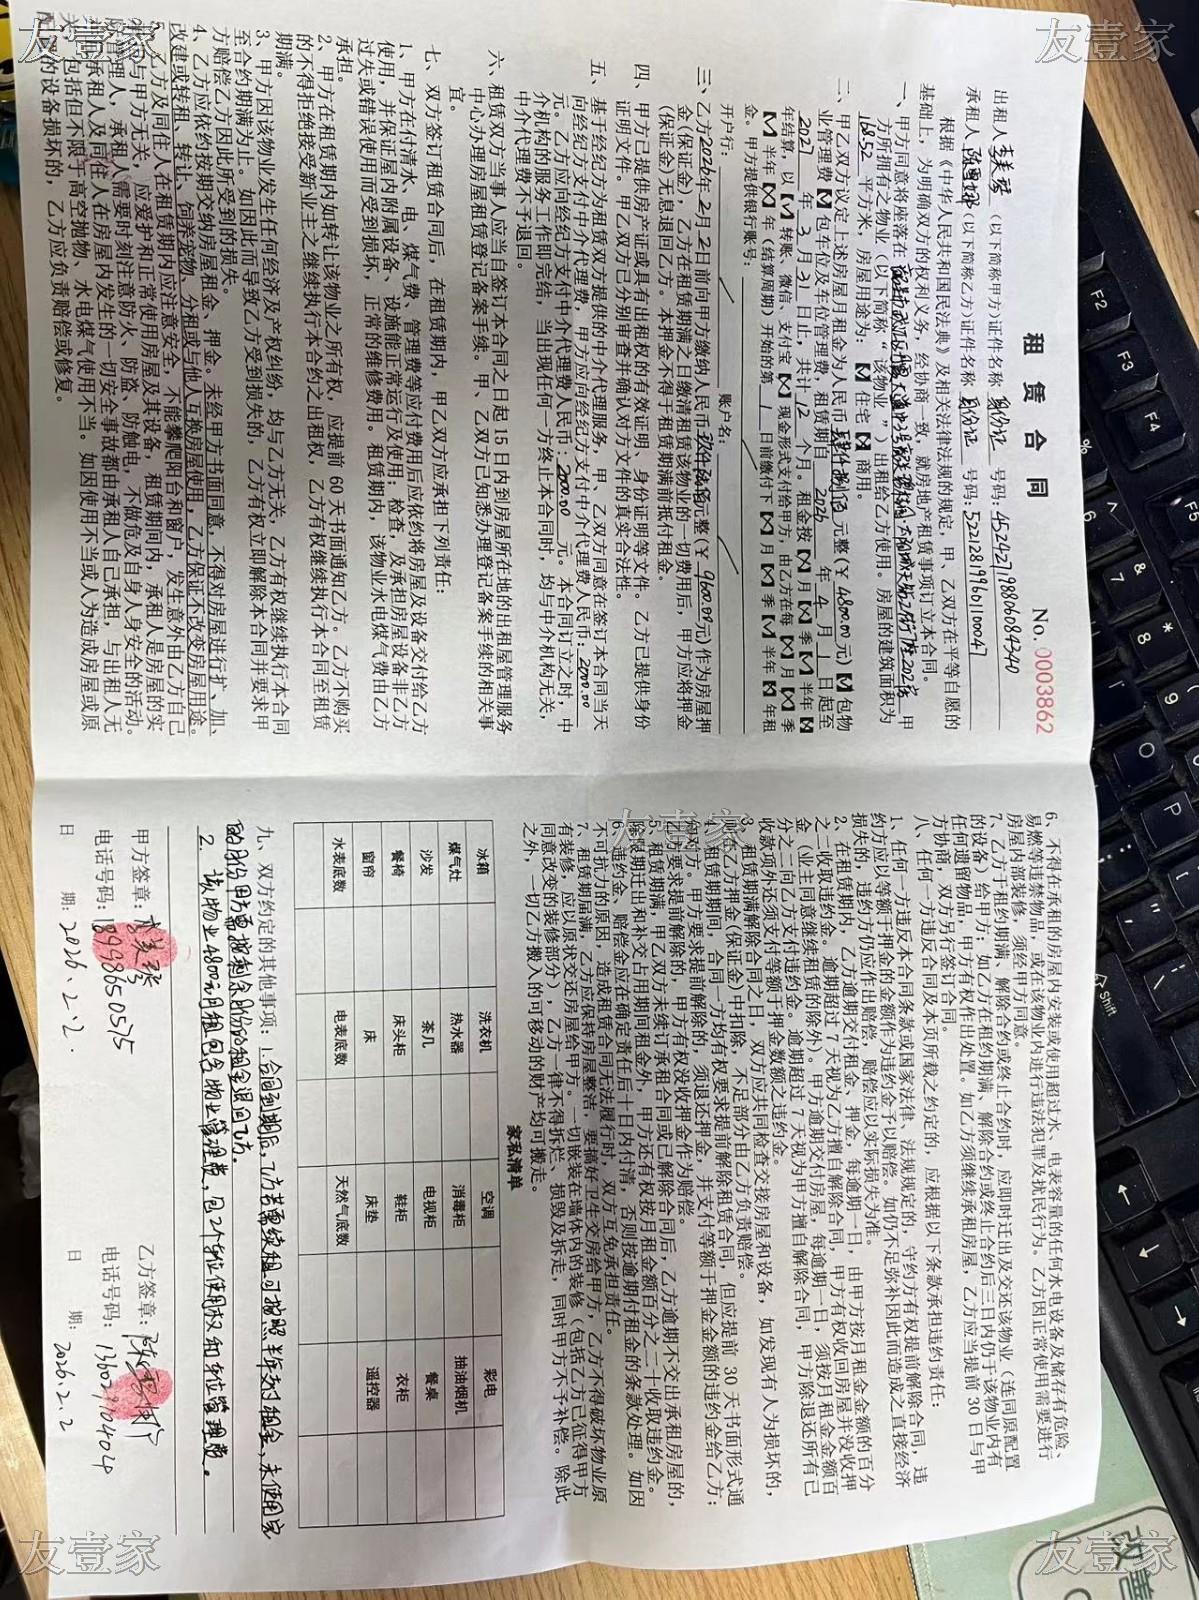 租赁合同
No. 00003862
出租人 （以下简称甲方）证件名称 身份证 号码：452427198806084340
承租人 （以下简称乙方）证件名称 身份证 号码：
根据《中华人民共和国民法典》及相关法律法规的规定，甲、乙双方在平等自愿的
基础上，为明确双方的权利义务，经协商一致，就房地产租赁事项订立本合同。
一、甲方同意将座落在 甲
方所拥有之物业（以下简称“该物业”）出租给乙方使用。房屋的建筑面积为
168.52 平方米，房屋用途为： 住宅 商用。
二、甲乙双方议定上述房屋月租金为人民币 元整（￥ 4800.00 元） 包物
业管理费 包车位及车位管理费，租赁期自 2026 年 4 月 1 日起至
2027 年 3 月 31 日止，共计 12 个月。租金按 月 季 半年
年结算，以 转账、微信、支付宝 现金形式支付给甲方，由乙方在每 月 季
半年 年（结算周期）开始的第 1 日前缴付下 月 季 半年 年租
金。甲方提供银行账号：
开户行： 账户名：
三、乙方2026年2月2日前向甲方缴纳人民币 元整（￥ 9600.00元）作为房屋押
金（保证金），乙方在租赁期满之日缴清租赁该物业的一切费用后，甲方应将押金
（保证金）无息退回乙方。本押金不得于租赁期满前抵付租金。
四、甲方已提供房产证或具有出租权的有效证明、身份证明等文件。乙方已提供身份
证明文件。甲乙双方已分别审查并确认对方文件的真实合法性。
五、基于经纪方为租赁双方提供的中介代理服务，甲、乙双方同意在签订本合同当天
向经纪方支付中介代理费，甲方应向经纪方支付中介代理费人民币：2000.00
元。乙方应向经纪方支付中介代理费人民币：2000.00 元。本合同订立之时，中
介机构的服务工作即完结，当出现任何一方终止本合同时，均与中介机构无关，
中介代理费不予退回。
六、租赁双方当事人应当自签订本合同之日起 15 日内到房屋所在地的出租屋管理服务
中心办理房屋租赁登记备案手续。甲、乙双方已知悉办理登记备案手续的相关事
宜。
七、双方签订租赁合同后，在租赁期内，甲乙双方应承担下列责任：
1、甲方在付清水、电、煤气费、管理费等应付费用后应依约将房屋及设备交付给乙方
使用，并保证屋内附属设备、设施能正常运行及使用；检查，及承担房屋设备非乙方
过失或错误使用而受到损坏，正常的维修费用。租赁期内，该物业水电煤气费由乙方
承担。
2、甲方在租赁期内如转让该物业之所有权，应提前 60 天书面通知乙方。乙方不购买
的不得拒绝接受新业主之继续执行本合约之出租权，乙方有权继续执行本合同至租赁
期满。
3、甲方因该物业发生任何经济及产权纠纷，均与乙方无关，乙方有权继续执行本合同
至合约期满为止。如因此而导致乙方受到损失的，乙方有权立即解除本合同并要求甲
方赔偿乙方因此所受到的损失。
4、乙方应依约按期交纳房屋租金、押金。未经甲方书面同意，不得对房屋进行扩、加、
改建或转租、转让、饲养宠物、分租或与他人互换房屋使用，乙方保证不改变房屋用途。
5、乙方及同住人在租赁期内应注意安全，不能攀爬阳台和窗户，发生意外由乙方自己
与甲方无关，应爱护和正常使用房屋及其设备，租赁期间内，承租人是房屋的实
管理人，承租人需要时刻注意防火、防盗、防触电，不做危及自身人身安全的活动。
承租人及同住人在房屋内发生的一切安全事故都由承租人自己承担，与出租人无
关，包括但不限于高空抛物、水电煤气使用不当。如因使用不当或人为造成房屋或原
的设备损坏的，乙方应负责赔偿或修复。
6、不得在承租的房屋内安装或使用超过水、电表容量的任何水电设备及储存有危险、
易燃等违禁物品，或在该物业内进行违法犯罪及扰民行为。乙方因正常使用需要进行
房屋内部装修，须经甲方同意。
7、乙方于租约期满、解除合约或终止合约时，应即时迁出及交还该物业（连同原配置
的设备）给甲方；如乙方在租约期满、解除合约或终止合约后三日内仍于该物业内有
任何遗留物品，甲方有权作出处置。如乙方须继续承租房屋，乙方应当提前 30 日与甲
方协商，双方另行签订合同。
八、任何一方违反合同及本页所载之约定的，应根据以下条款承担违约责任：
1、任何一方违反本合同条款或国家法律、法规规定的，守约方有权提前解除合同，违
约方应以等额于押金的金额作为违约金予以赔偿。如仍不足弥补因此而造成之直接经济
损失的，违约方仍应作出赔偿，赔偿应以实际损失为准。
2、在租赁期内，乙方逾期交付租金、押金，每逾期一日，由甲方按月租金金额的百分
之二收取违约金。逾期超过 7 天视为乙方擅自解除合同，甲方有权收回房屋并没收押
金（业主同意继续租赁的除外）。甲方逾期交付房屋，每逾期一日，须按月租金金额百
分之二向乙方支付违约金。逾期超过 7 天视为甲方擅自解除合同，甲方除退还所有已
收款项外还须支付等额于押金数额之违约金。
3、租赁期满解除合同之日，双方应共同检查交接房屋和设备，如发现有人为损坏的，
则在乙方押金（保证金）中扣除，不足部分由乙方负责赔偿。
4、租赁期期间，合同一方均有权要求提前解除租赁合同，但应提前 30 天书面形式通
知对方。甲方要求提前解除的，须退还押金，并支付等额于押金金额的违约金给乙方；
乙方要求提前解除的，甲方有权没收押金作为赔偿。
5、租赁期满，甲乙双方未续订承租合同或已解除合同后，乙方逾期不交出承租房屋的，
除限期迁出和补交占用期间租金外，甲方还有权按月租金额百分之二十收取违约金。
6、违约金、赔偿金应在确定责任后十日内付清，否则按逾期付租金的条款处理。如因
不可抗力的原因，造成租赁合同无法履行时，双方互免承担责任。
7、租赁期届满，乙方应保持房屋整洁，要搞好卫生交房给甲方，乙方不得破坏物业原
有装修，应以原状交还房屋给甲方。一切嵌装在墙体内的装修（包括乙方已征得甲方
同意改变的装修部分），乙方一律不得拆烂、损毁及拆走，同时甲方不予补偿。除此
之外，一切乙方搬入的可移动的财产均可搬走。
家私清单
冰箱 洗衣机 空调 彩电
煤气灶 热水器 消毒柜 抽油烟机
沙发 茶几 电视柜 餐桌
餐椅 床头柜 鞋柜 衣柜
窗帘 床 床垫 遥控器
水表底数 电表底数 天然气底数
九、双方约定的其他事项：1.合同到期后，乙方若需续租可按照半年支付租金，未使用完
的月份甲方需按剩余月份的租金退回乙方。
2.该物业4800元月租包含物业管理费，包2个车位使用权和车位管理费。
甲方签章： 乙方签章：
电话号码：18998650515 电话号码：13602910404
日 期：2026.2.2. 日 期：2026.2.2
友壹家
友壹家
友壹家
友壹家
友壹家
F2
F3
F4
Shift
改善